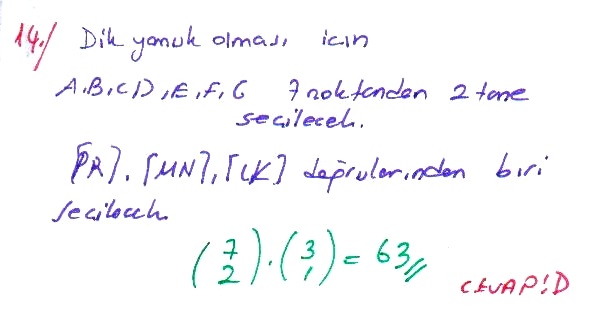 14./ Dik yamuk olması için
A,B,C,D,E,F,G 7 noktandan 2 tane
seçilecek.
[PR], [MN], [LK] doğrularından biri
seçilecek.
(7 2) . (3 1) = 63//
CEVAP: D